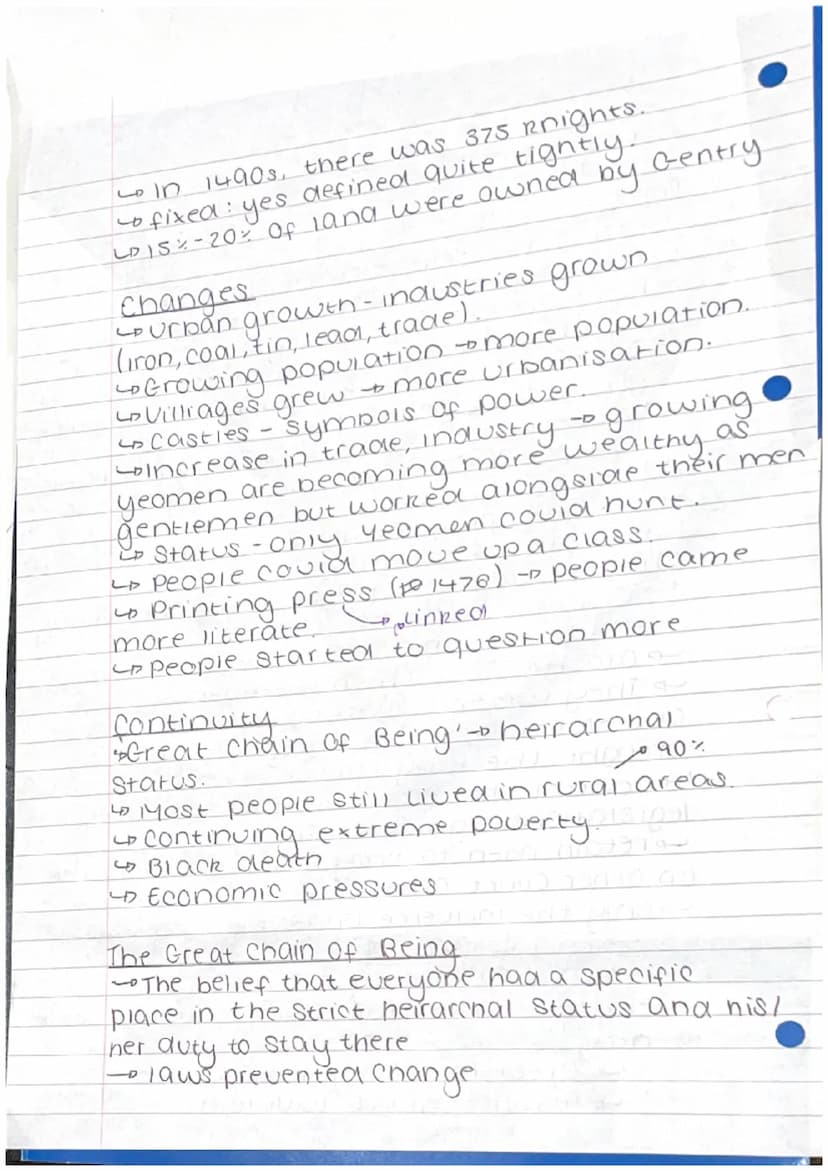 ↳ In 1490s, there was 375 knights.
↳ fixed: yes defined quite tightly.
↳ 15%-20% Of land were owned by Gentry
Changes
↳ Urban growth - industries grown
(iron, coal, tin, lead, trade).
↳ Growing population → more population.
↳ Villiages grew → more urbanisation.
↳ Castles - symbols of power.
↳ Increase in trade, industry → growing
yeomen are becoming more wealthy as
gentlemen but worked alongside their men
↳ Status - only yeomen could hunt.
↳ People could move up a class.
↳ Printing press (1476) → people came
more literate. → Linked
↳ People started to question more
Continuity
↳ 'Great Chain Of Being' → heirarchal
status. → 90%
↳ Most people still lived in rural areas.
↳ Continuing extreme poverty.
↳ Black death
↳ Economic pressures
The Great Chain Of Being
→ The belief that everyone had a specific
place in the strict heirarchal status and his/
her duty to stay there
→ laws prevented change